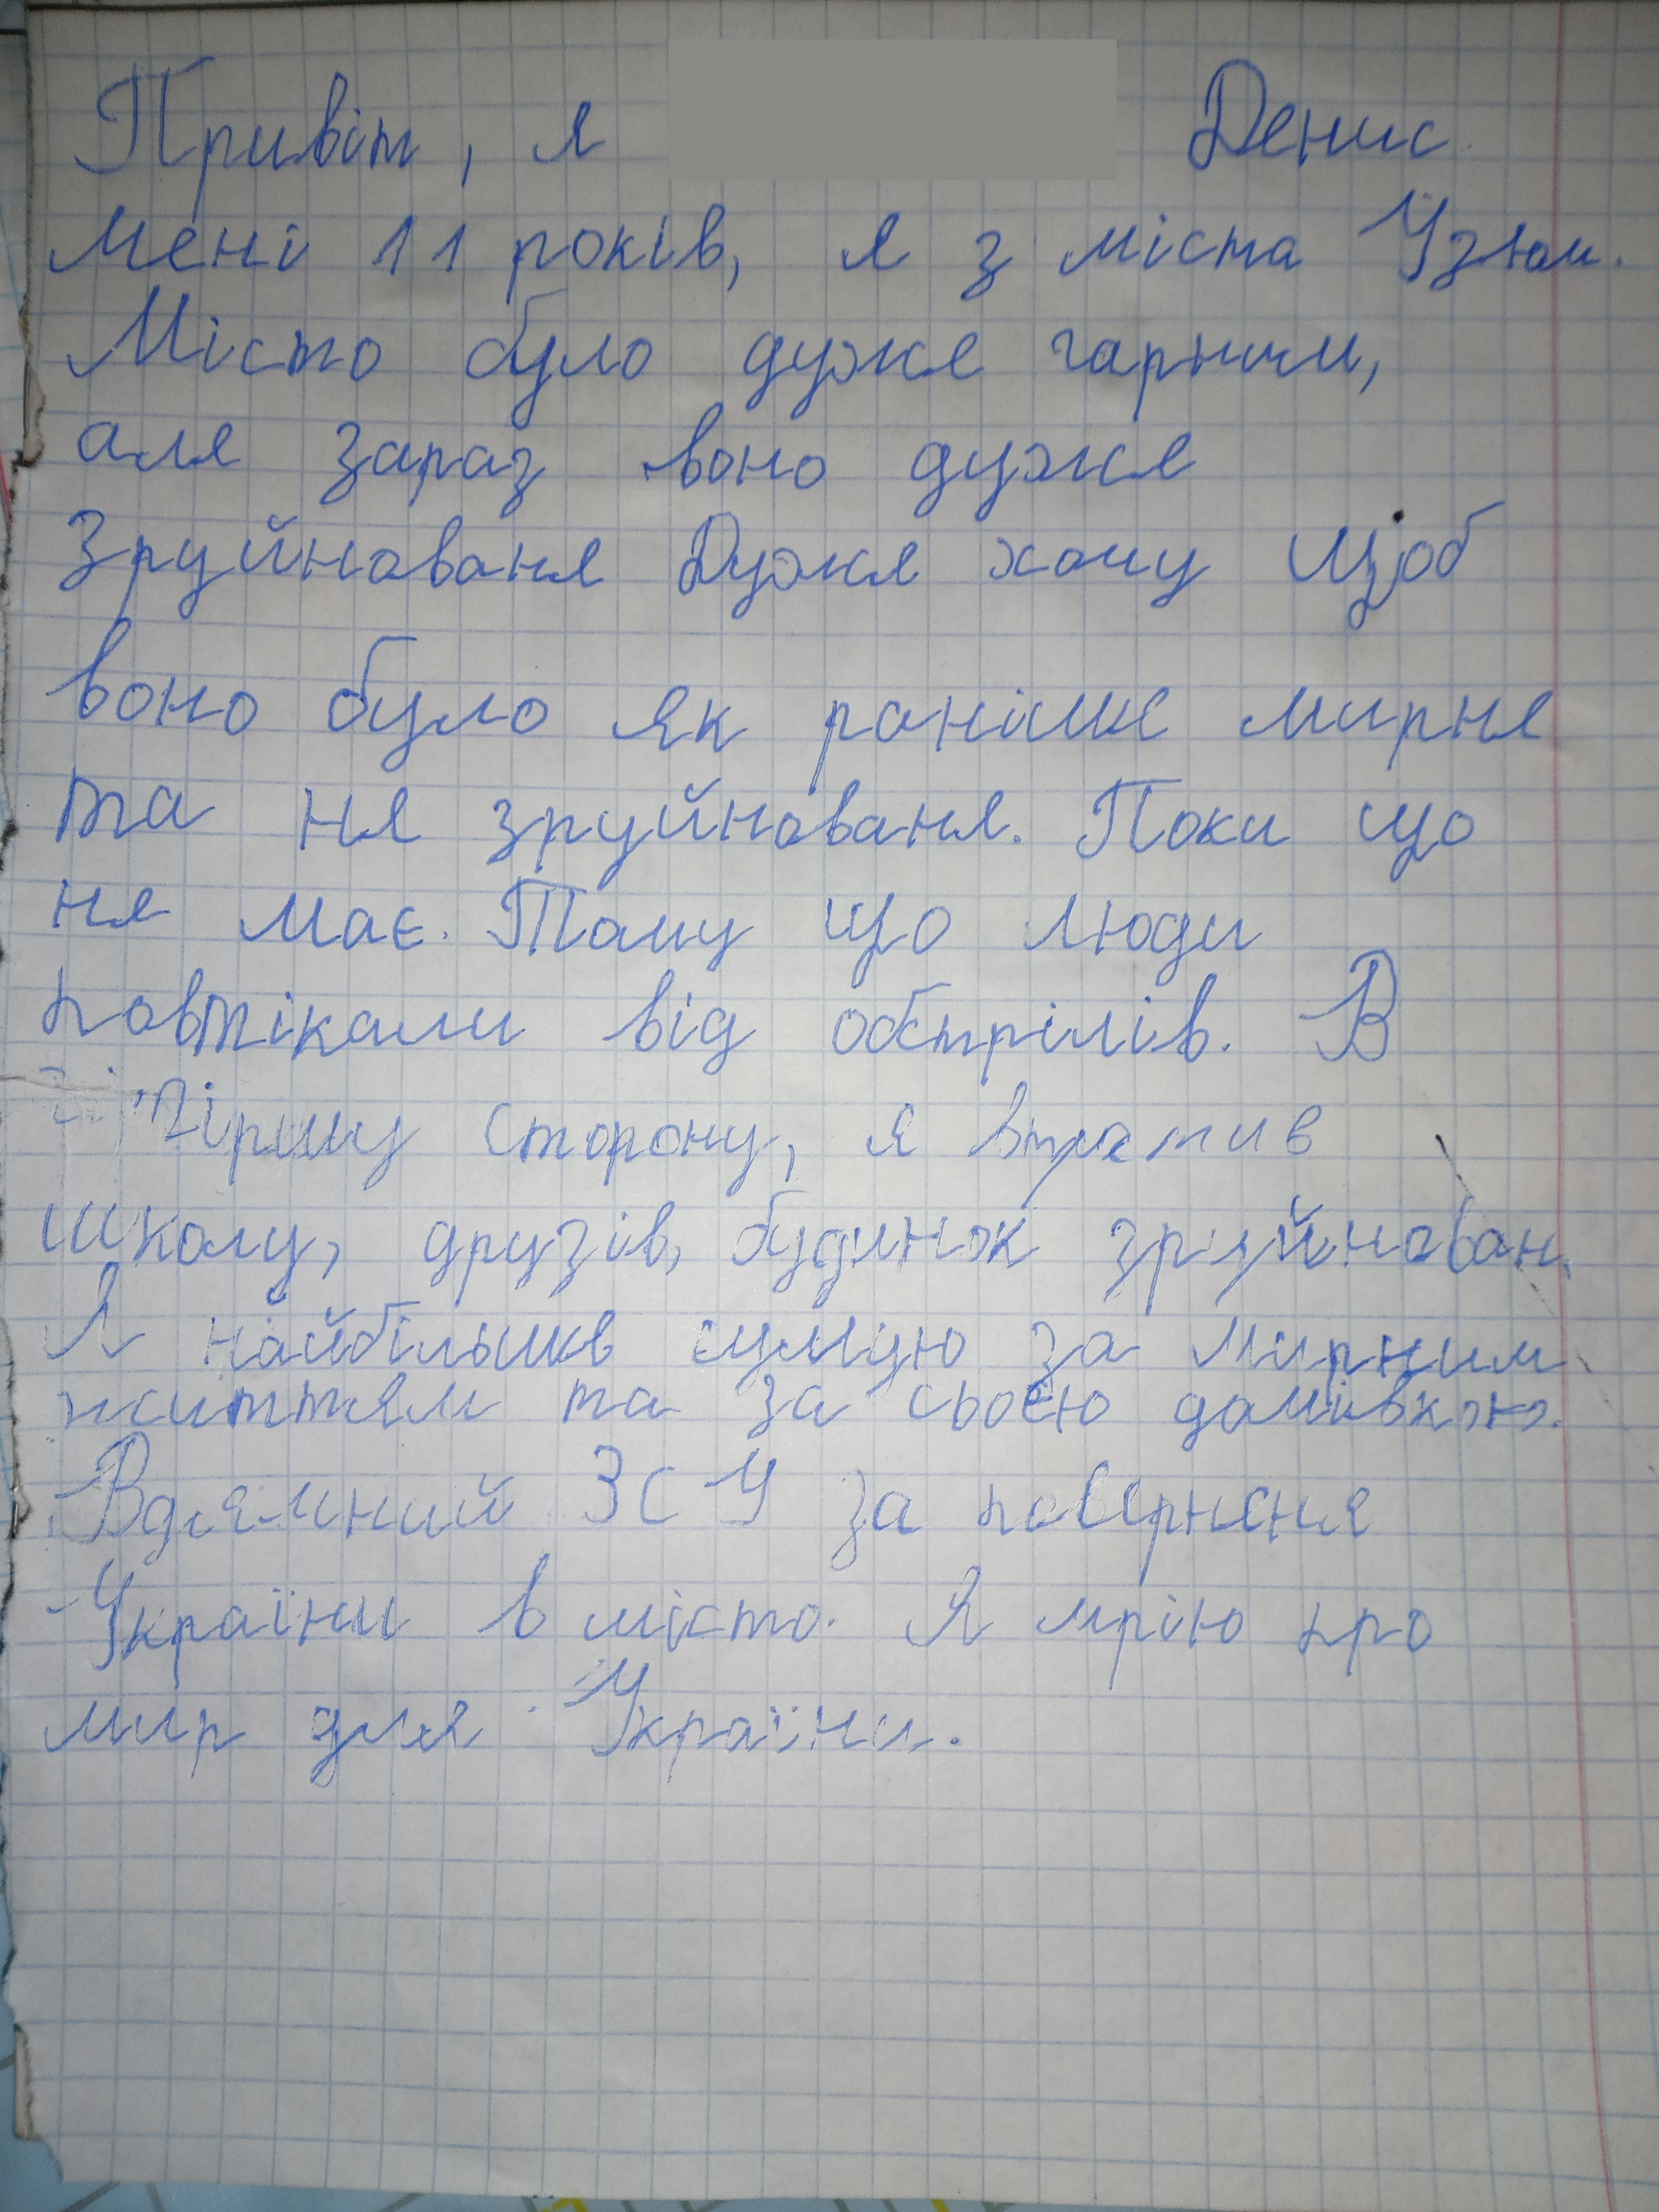 Привіт, я Денис
Мені 11 років, я з міста Узюм.
Місто було дуже гарним,
але зараз воно дуже
Зруйноване Дуже хочу щоб
воно було як раніше мирне
та не зруйноване. Поки що
не має. Тому що люди
повтікали від обстрілів. В
гіршу сторону, я втратив
школу, друзів, будинок зруйнован.
Я найбільше сумую за мирним
життям та за своєю домівкою.
Вдячний ЗСУ за повернене
України в місто. Я мрію про
мир для України.